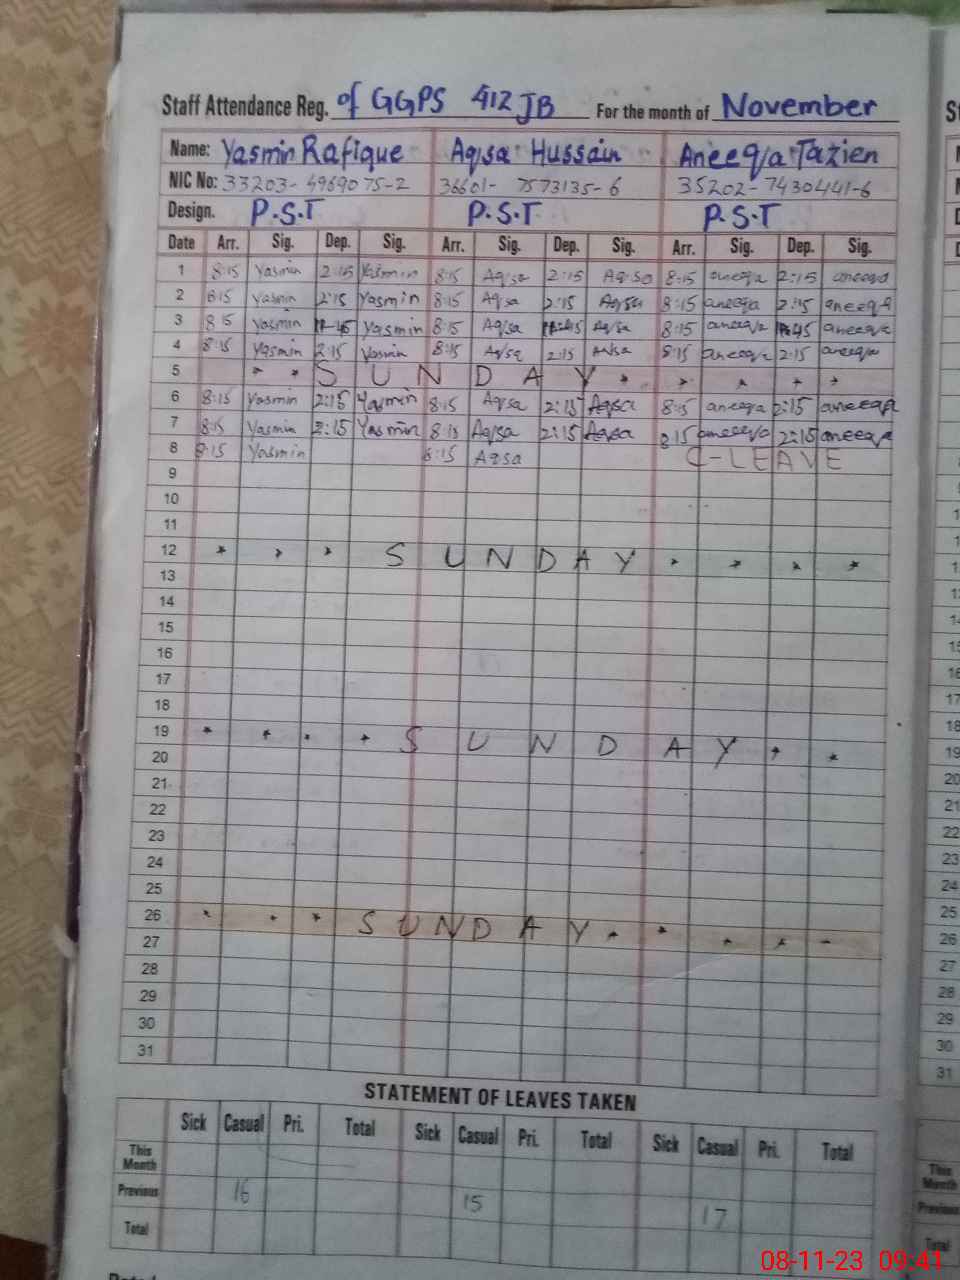 Staff Attendance Reg. of GGPS 412 JB For the month of November
Name: Yasmin Rafique Aqsa Hussain Aneeqa Tazien
NIC No: 33203-4969075-2 36601-7573135-6 35202-7430441-6
Design. P.S.T P.S.T P.S.T
Date Arr. Sig. Dep. Sig. Arr. Sig. Dep. Sig. Arr. Sig. Dep. Sig.
1 8:15 Yasmin 2:15 Yasmin 8:15 Aqsa 2:15 Aqsa 8:15 aneeqa 2:15 aneeqa
2 8:15 Yasmin 2:15 Yasmin 8:15 Aqsa 2:15 Aqsa 8:15 aneeqa 2:15 aneeqa
3 8:15 Yasmin Yasmin 8:15 Aqsa Aqsa 8:15 aneeqa aneeqa
4 8:15 Yasmin 2:15 Yasmin 8:15 Aqsa 2:15 Aqsa 8:15 aneeqa 2:15 aneeqa
5 SUNDAY
6 8:15 Yasmin 2:15 Yasmin 8:15 Aqsa 2:15 Aqsa 8:15 aneeqa 2:15 aneeqa
7 8:15 Yasmin 2:15 Yasmin 8:15 Aqsa 2:15 Aqsa 8:15 aneeqa 2:15 aneeqa
8 8:15 Yasmin 8:15 Aqsa C-LEAVE
9
10
11
12 SUNDAY
13
14
15
16
17
18
19 SUNDAY
20
21
22
23
24
25
26 SUNDAY
27
28
29
30
31
STATEMENT OF LEAVES TAKEN
Sick Casual Pri. Total Sick Casual Pri. Total Sick Casual Pri. Total
This Month
Previous 16 15 17
Total
08-11-23 09:41